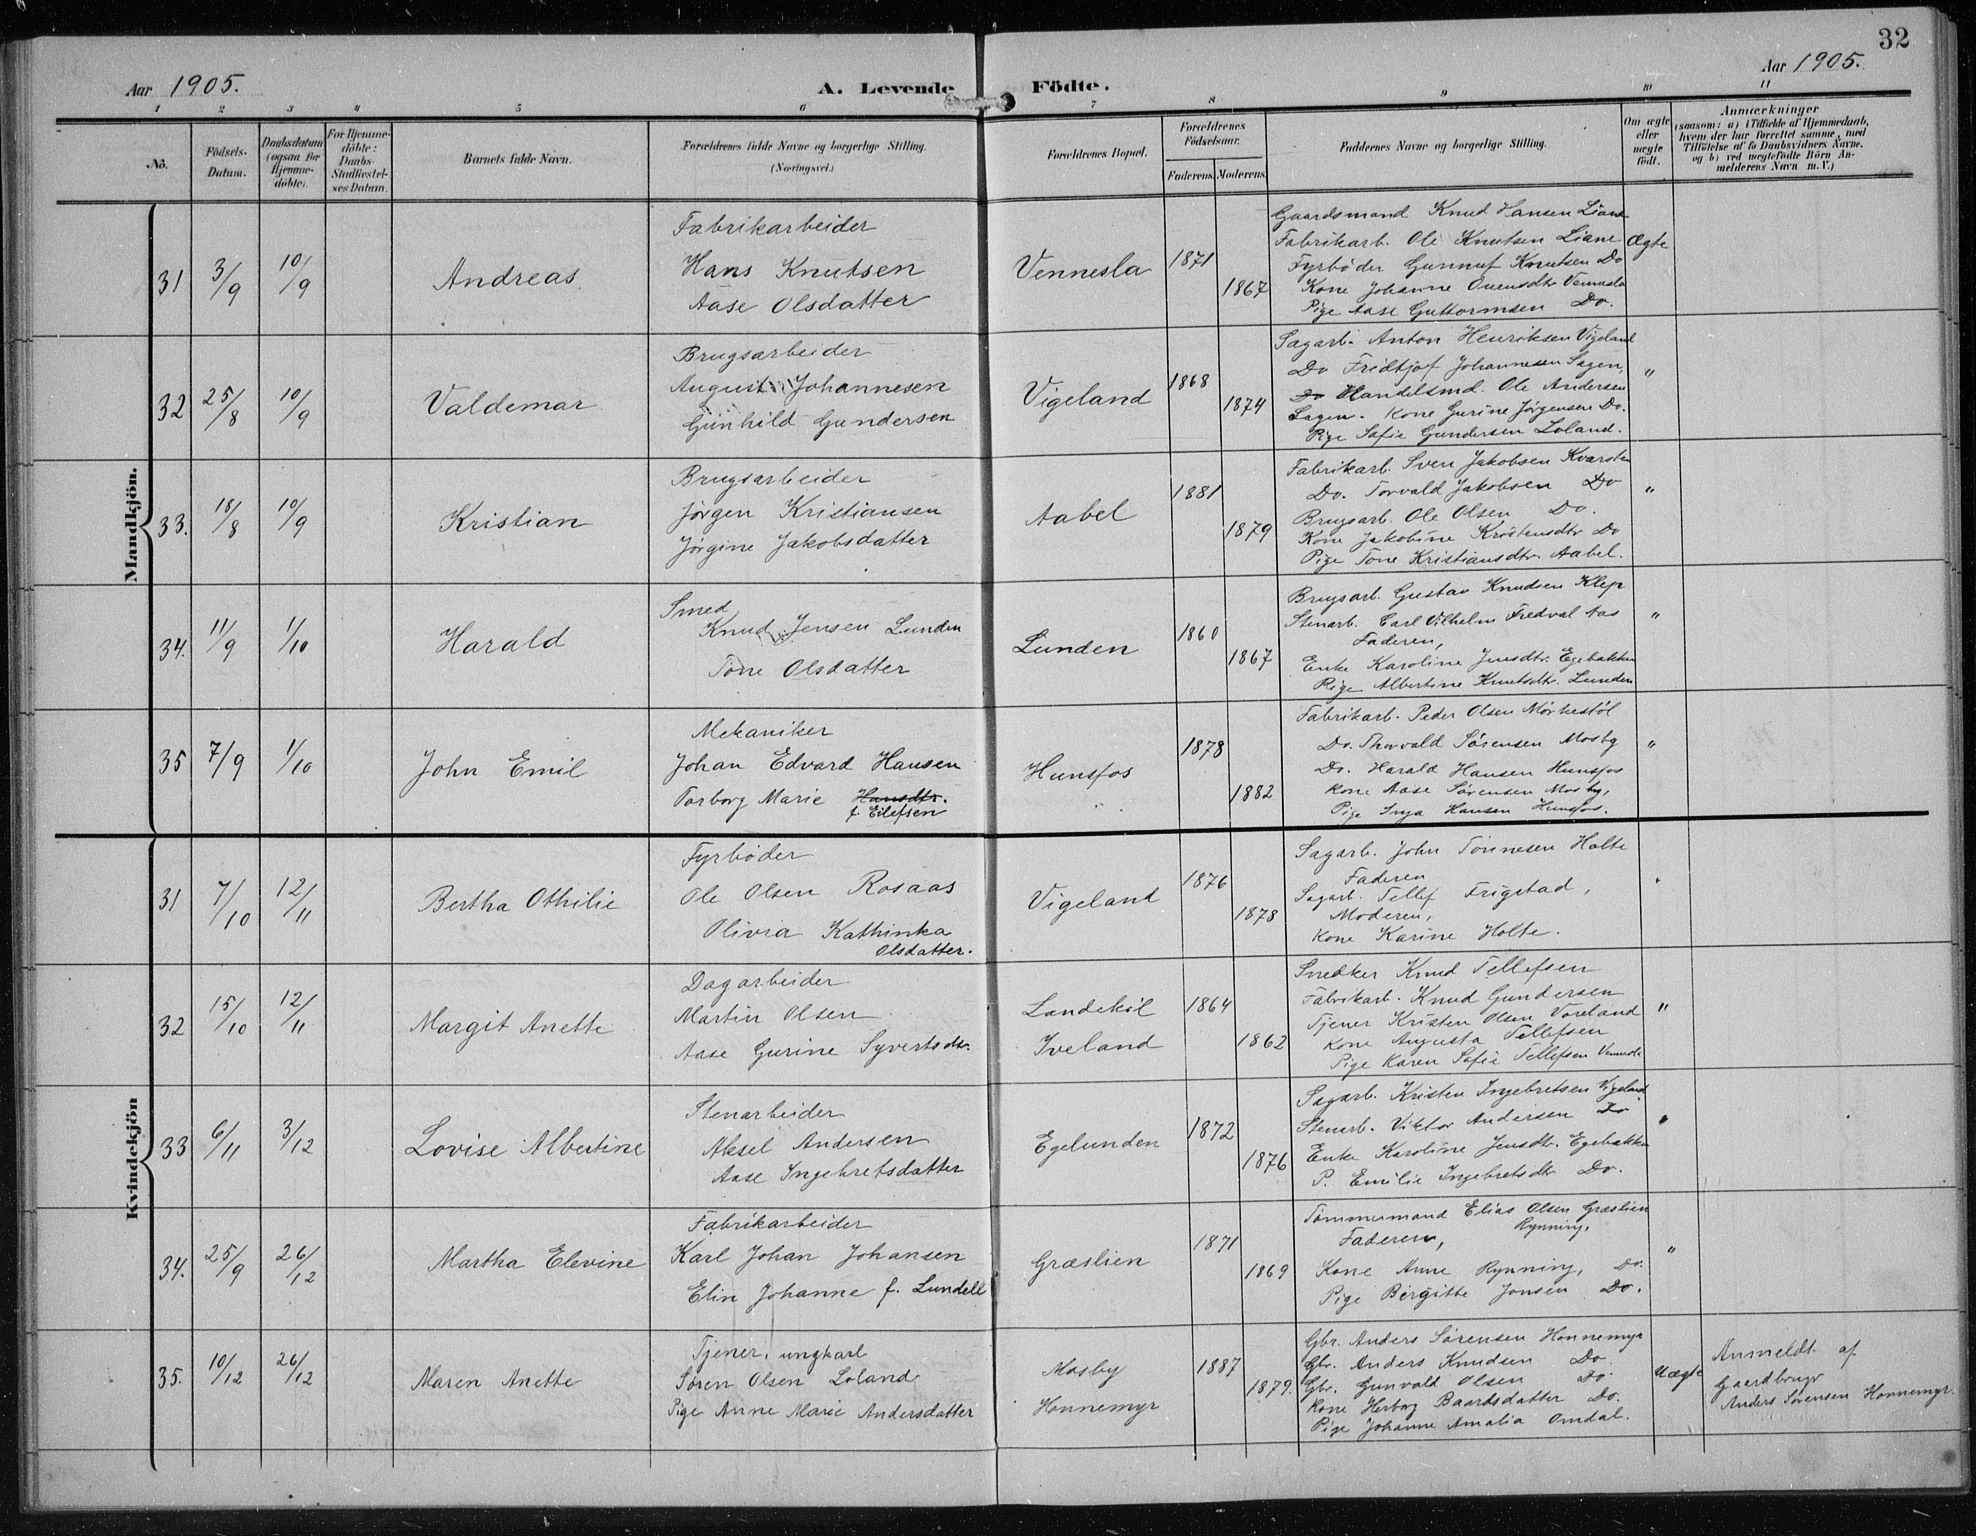 32
Aar 1905.
A. Levende Födte.
Aar 1905.
1 2 3 4 5 6 7 8 9 10 11
No.
Födsels-Datum.
Daabsdatum (ogsaa for Hjemme-döbte).
For Hjemme-döbte: Daabs-Stadfæstel-ses Datum.
Barnets fulde Navn.
Forældrenes fulde Navne og borgerlige Stilling.
(Næringsvei.)
Forældrenes Bopæl.
Forældrenes Födselsaar.
Faderens. Moderens.
Faddernes Navne og borgerlige Stilling.
Om ægte eller uægte födt.
Anmærkninger
(saasom: a) i Tilfælde af Hjemmedaab, hvem der har forrettet samme, med Tilföielse af to Daabsvidners Navne, og b) ved uægtefödte Börn An-melderens Navn m. V.)
Mandkjön.
31 3/9 10/9 Andreas
Fabrikarbeider
Hans Knutsen
Aase Olsdatter
Vennesla 1871 1867
Gaardsmand Knud Hansen Liane
Fabrikarb. Ole Knutsen Liane
Fyrbøder Gunnuf Knutsen Do
Kone Johanne Ouensdtr Vennesla
Pige Aase Guttormsen Do.
Ægte
32 25/8 10/9 Valdemar
Brugsarbeider
August Johannesen
Gunhild Gundersen
Vigeland 1868 1874
Sagarb. Anton Henriksen Vigeland
Do Fridtjof Johannesen Sagen,
Do Handelsmd. Ole Andersen
Sagen. Kone Gurine Jørgensen Do.
Pige Sofie Gundersen Loland.
"
33. 18/8 10/9 Kristian
Brugsarbeider
Jørgen Kristiansen
Jørgine Jakobsdatter
Aabel 1881 1879
Fabrikarb. Sven Jakobsen Kvarsten
Do. Torvald Jakobsen Do
Brugsarb. Ole Olsen Do.
Kone Jakobine Kristensdtr Do
Pige Tone Kristiansdtr. Aabel.
"
34. 11/9 1/10 Harald
Smed
Knud Jensen Lunden
Tone Olsdatter
Lunden 1860 1867
Brugsarb. Gustav Knudsen Klep
Stenarb. Carl Vilhelm Fredval Aas
Faderen,
Enke Karoline Jensdtr. Egebakken
Pige Albertine Knutsdtr. Lunden
"
35 7/9 1/10 John Emil
Mekaniker
Johan Edvard Hansen
Torborg Marie Hansdtr.
f. Eilefsen
Hunsfos 1878 1882
Fabrikarb. Peder Olsen Mørkestøl
Do. Thorvald Sørensen Mosby
Do. Harald Hansen Hunsfos
Kone Aase Sørensen Mosby,
Pige Inga Hansen Hunsfos.
"
Kvindekjön
31 7/10 12/11 Bertha Othilie
Fyrbøder
Ole Olsen Rosaas
Olivia Kathinka
Olsdatter.
Vigeland 1876 1878
Sagarb. John Tønnesen Holte
Faderen
Sagarb. Tellef Frigstad,
Moderen,
Kone Karine Holte.
"
32 15/10 12/11 Margit Anette
Dagarbeider
Martin Olsen
Aase Gurine Syvertsdtr.
Landekil
Iveland
1864 1862
Snedker Knud Tellefsen
Fabrikarb. Knud Gundersen
Tjener Kristen Olsen Voreland
Kone Augusta Tellefsen
Pige Karen Sofie Tellefsen Vennesla
"
33 6/11 3/12 Lovise Albertine
Stenarbeider
Aksel Andersen
Aase Ingebretsdatter
Egelunden 1872 1876
Sagarb. Kristen Ingebretsen Vigeland
Stenarb. Viktor Andersen Do
Enke Karoline Jensdtr. Egebakken
P. Emilie Ingebretsdtr Do.
"
34. 25/9 26/12 Martha Elevine
Fabrikarbeider
Karl Johan Johansen
Elin Johanne f. Lundell
Græslien 1871 1869
Tømmermand Elias Olsen Græslien
Rynning,
Faderen,
Kone Anne Rynning, Do.
Pige Birgitte Jonsen Do.
"
35. 10/12 26/12 Maren Anette
Tjener, ungkarl
Søren Olsen Loland
Pige Anne Marie Andersdatter
Mosby
Honnemyr
1887 1879.
Gbr. Anders Sørensen Honnemyr
Gbr. Anders Knudsen Do.
Gbr. Gunvald Olsen Do
Kone Herborg Baardsdatter Do.
Pige Johanne Amalia Omdal.
Uægte
Anmeldt af
Gaardbruger
Anders Sørensen Honnemyr.